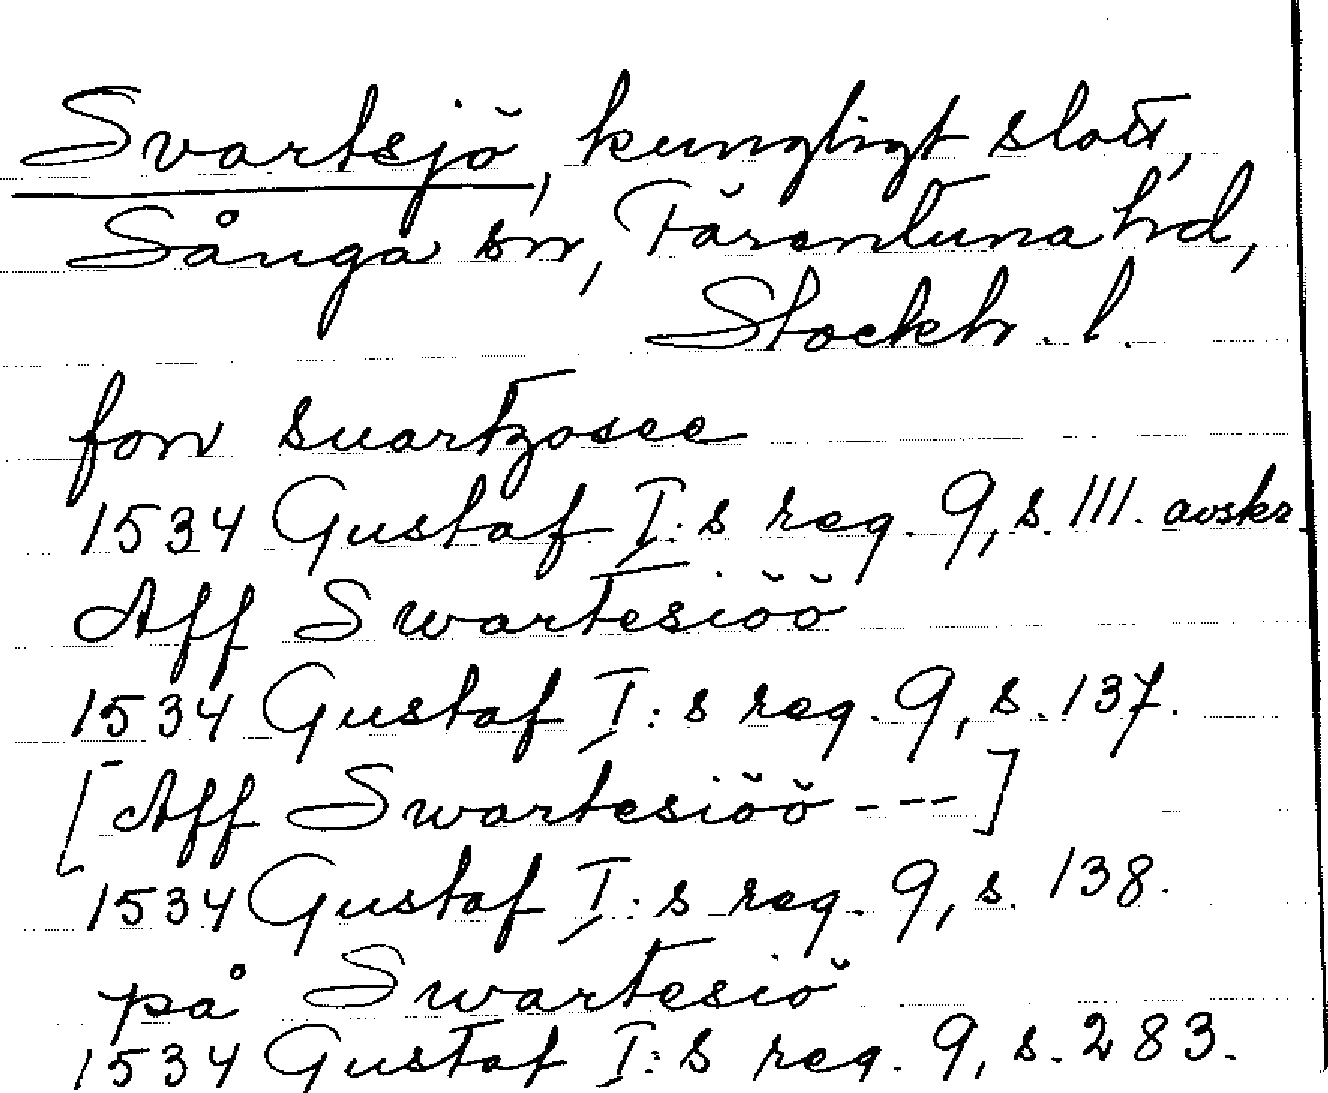 Svartsjö, kungligt slott,
Sånga sn, Färentuna hd,
Stockh. l.
fon suartzosee
1534 Gustaf I:s reg. 9, s. 111. avskr.
Aff Swartesiöö
1534 Gustaf I:s reg. 9, s. 137.
[Aff Swartesiöö ---]
1534 Gustaf I:s reg. 9, s. 138.
på Swartesiö
1534 Gustaf I:s reg. 9, s. 283.